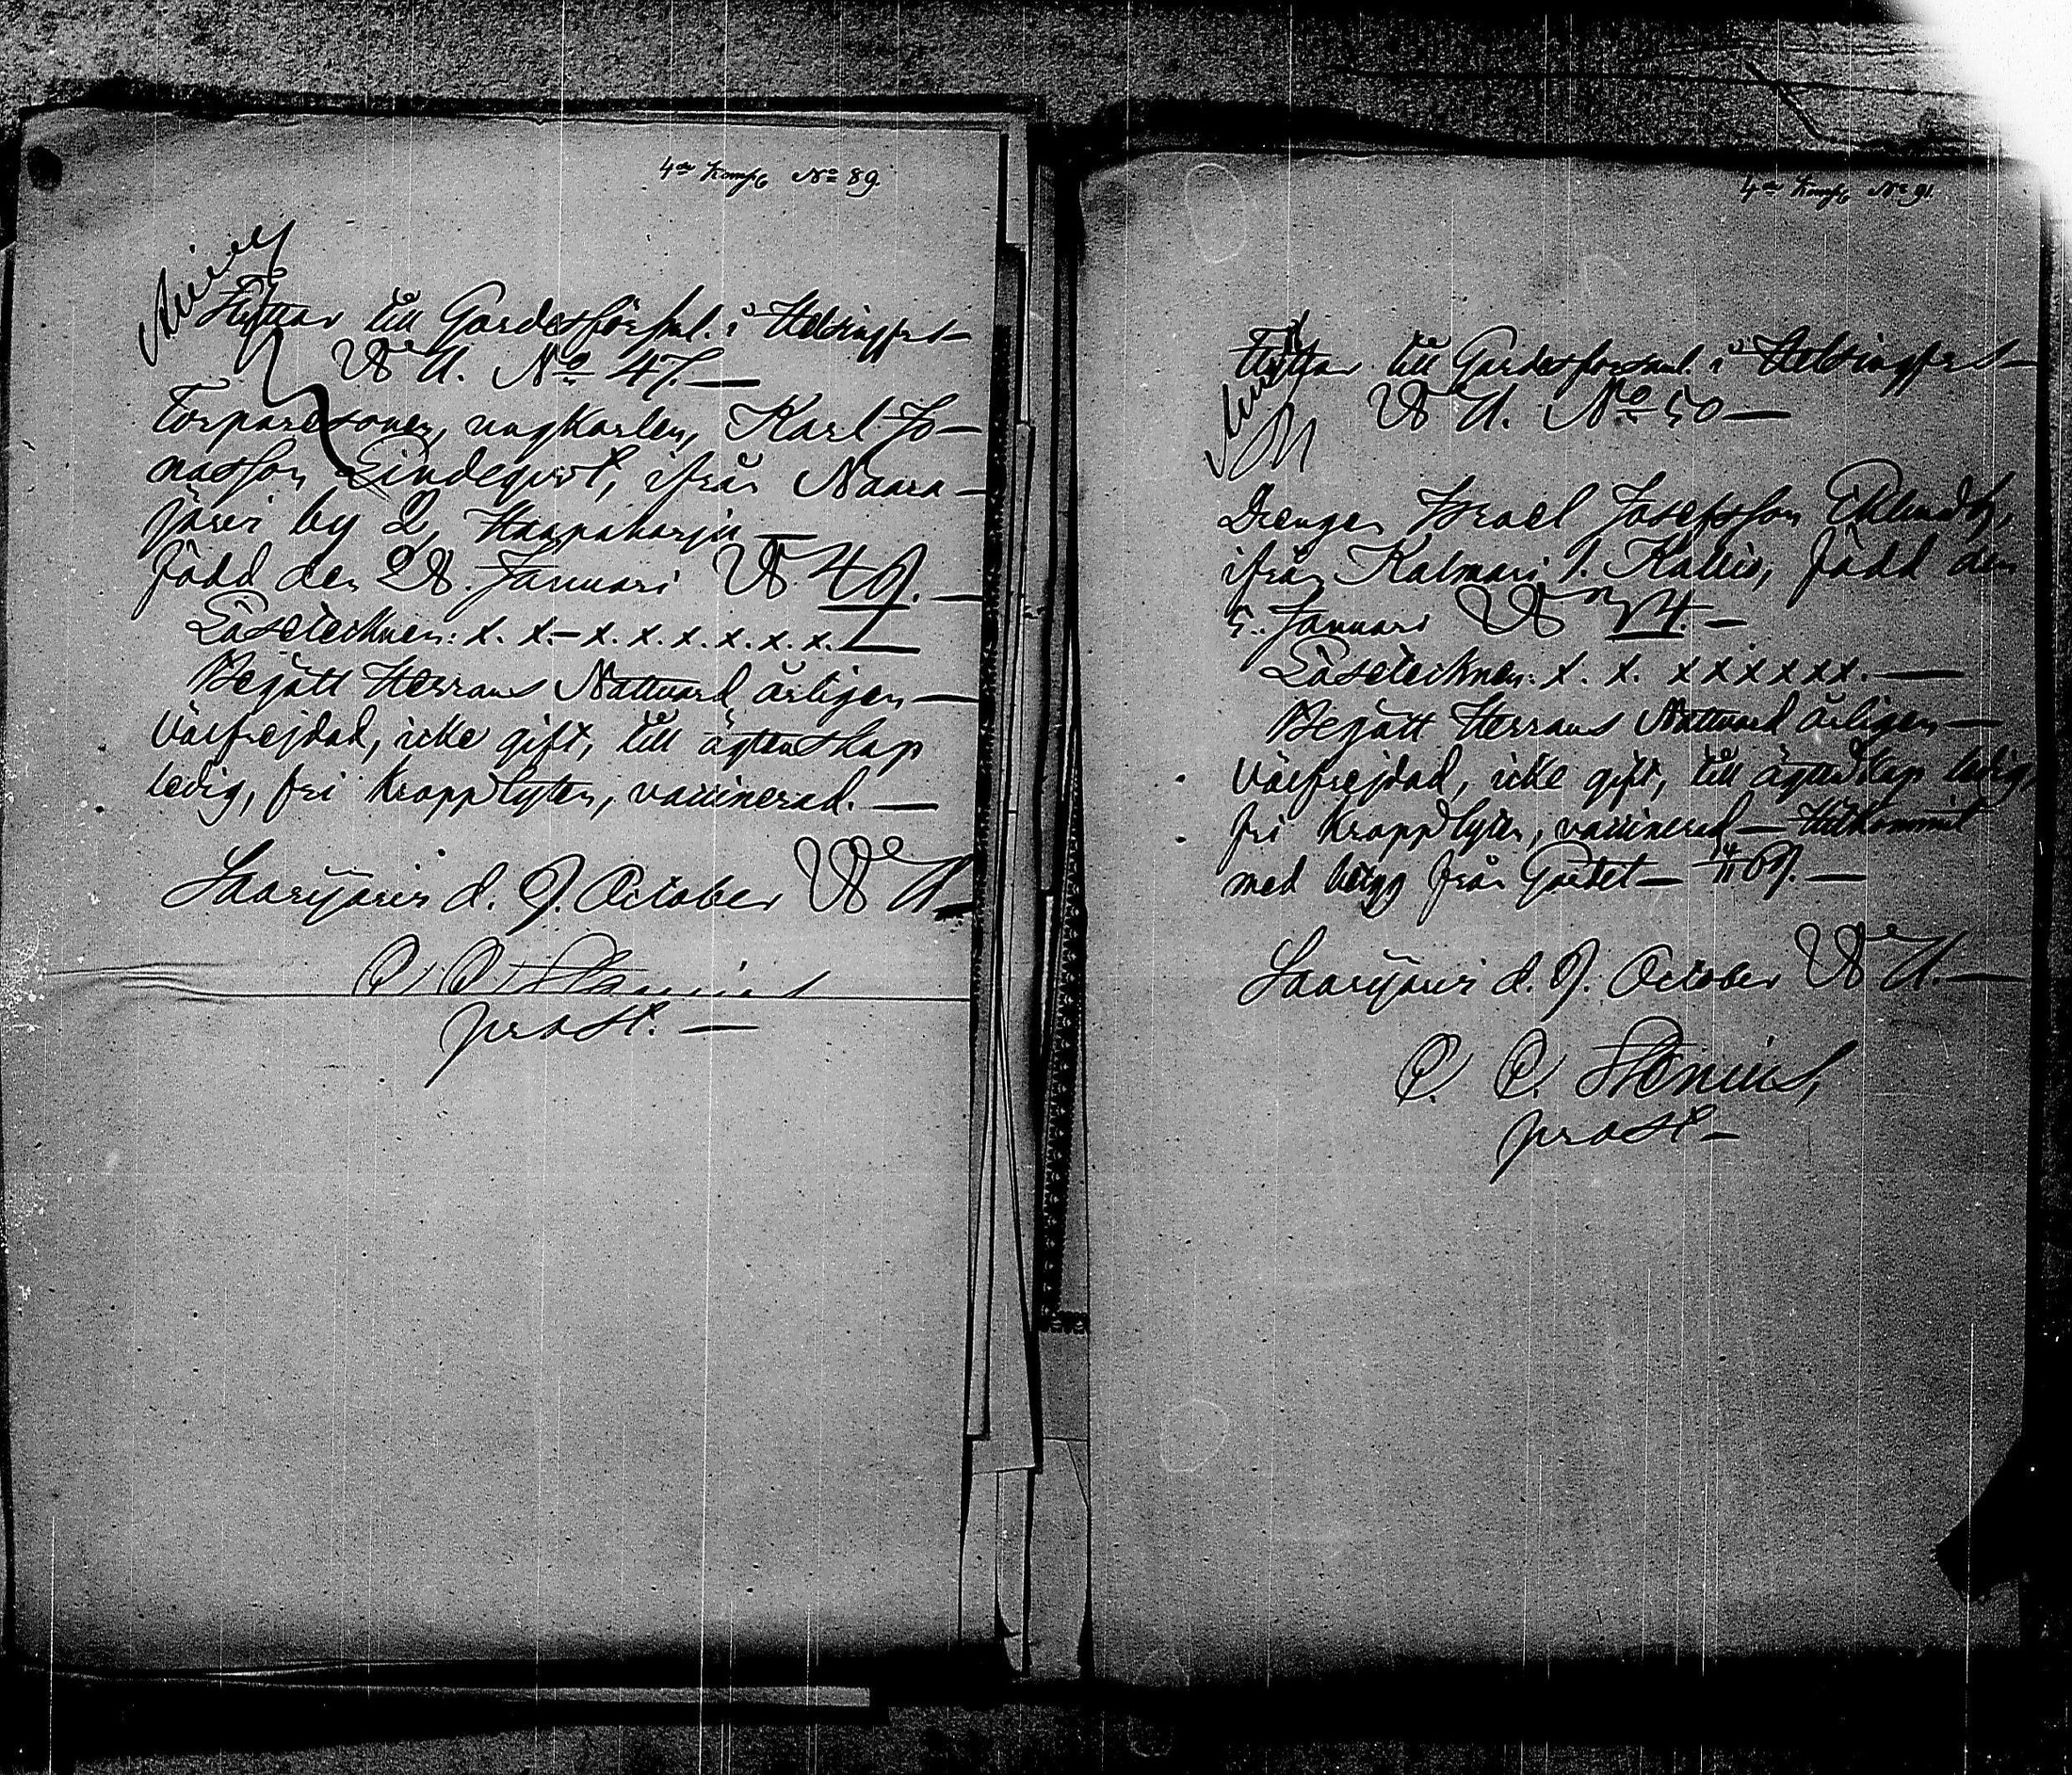 4de Komp. No 89.
Flyttar till Gardesförsml. i Helsingfors
No 47.
Torparesonen, ungkarlen, Karl Jo-
nasson Lindeqvist, ifrån Naara-
järvi by 2, Haapaharju
född den 28. Januari 1849.
Läsetecknen: x. x. x. x. x. x. x. x.
Begått Herrans Nattvard årligen
Välfrejdad, icke gift, till ägtenskap
ledig, fri kroppslyten, vaccinerad.
Saarijärvi d. 9. October
prost.
4de Komp. No 91.
Flyttar till Gardesförsaml. i Helsingfors
No 50
Drengen Israel Josefsson
ifrån Kalmari 1. Kallio, född den
5. Januari
Läsetecknen: x. x. x x x x x x.
Begått Herrans Nattvard årligen
Välfrejdad, icke gift, till ägtenskap ledig,
fri kroppslyten, vaccinerad — Hitkommit
med betyg från Gardet
Saarijärvi d. 9. October
Stenius,
prost